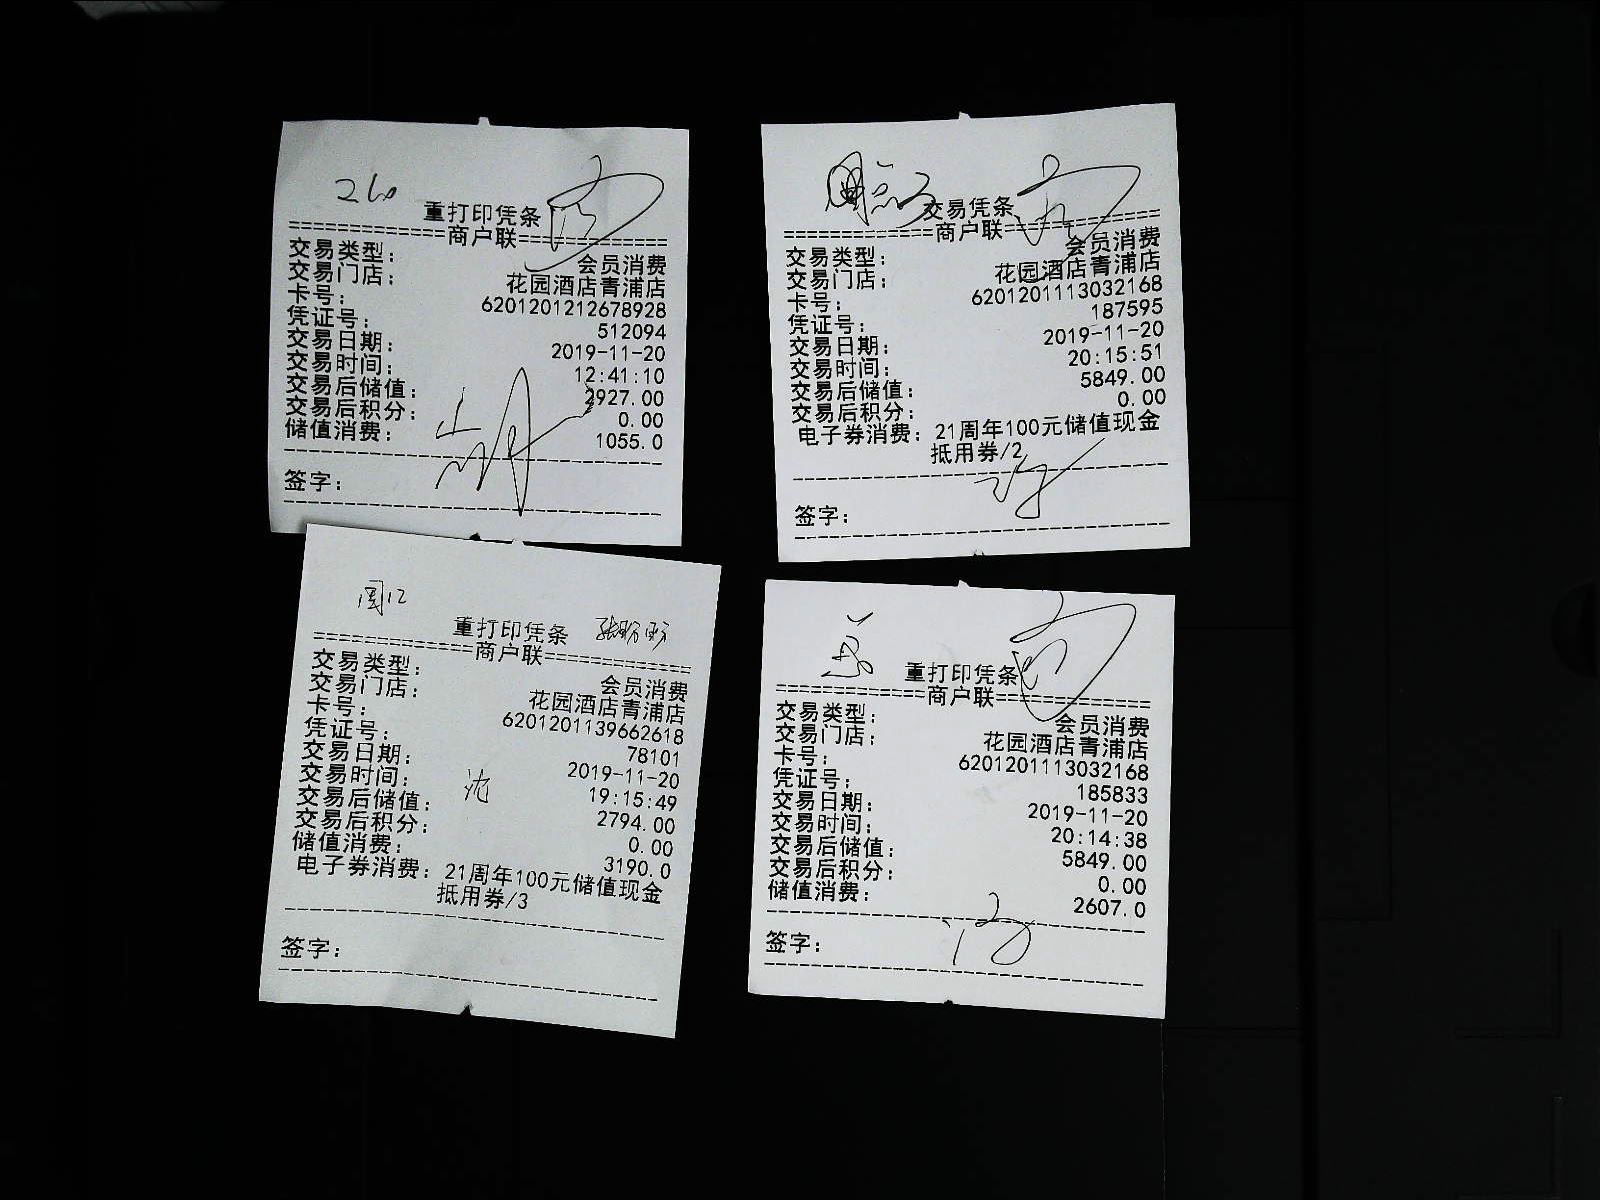 260
重打印凭条
============商户联============
交易类型: 会员消费
交易门店: 花园酒店青浦店
卡号: 6201201212678928
凭证号: 512094
交易日期: 2019-11-20
交易时间: 12:41:10
交易后储值: 2927.00
交易后积分: 0.00
储值消费: 1055.0
签字:
交易凭条
============商户联============
交易类型: 会员消费
交易门店: 花园酒店青浦店
卡号: 6201201113032168
凭证号: 187595
交易日期: 2019-11-20
交易时间: 20:15:51
交易后储值: 5849.00
交易后积分: 0.00
电子券消费: 21周年100元储值现金
抵用券/2
签字:
重打印凭条
============商户联============
交易类型: 会员消费
交易门店: 花园酒店青浦店
卡号: 6201201139662618
凭证号: 78101
交易日期: 2019-11-20
交易时间: 19:15:49
交易后储值: 2794.00
交易后积分: 0.00
储值消费: 3190.0
电子券消费: 21周年100元储值现金
抵用券/3
签字:
重打印凭条
============商户联============
交易类型: 会员消费
交易门店: 花园酒店青浦店
卡号: 6201201113032168
凭证号: 185833
交易日期: 2019-11-20
交易时间: 20:14:38
交易后储值: 5849.00
交易后积分: 0.00
储值消费: 2607.0
签字: